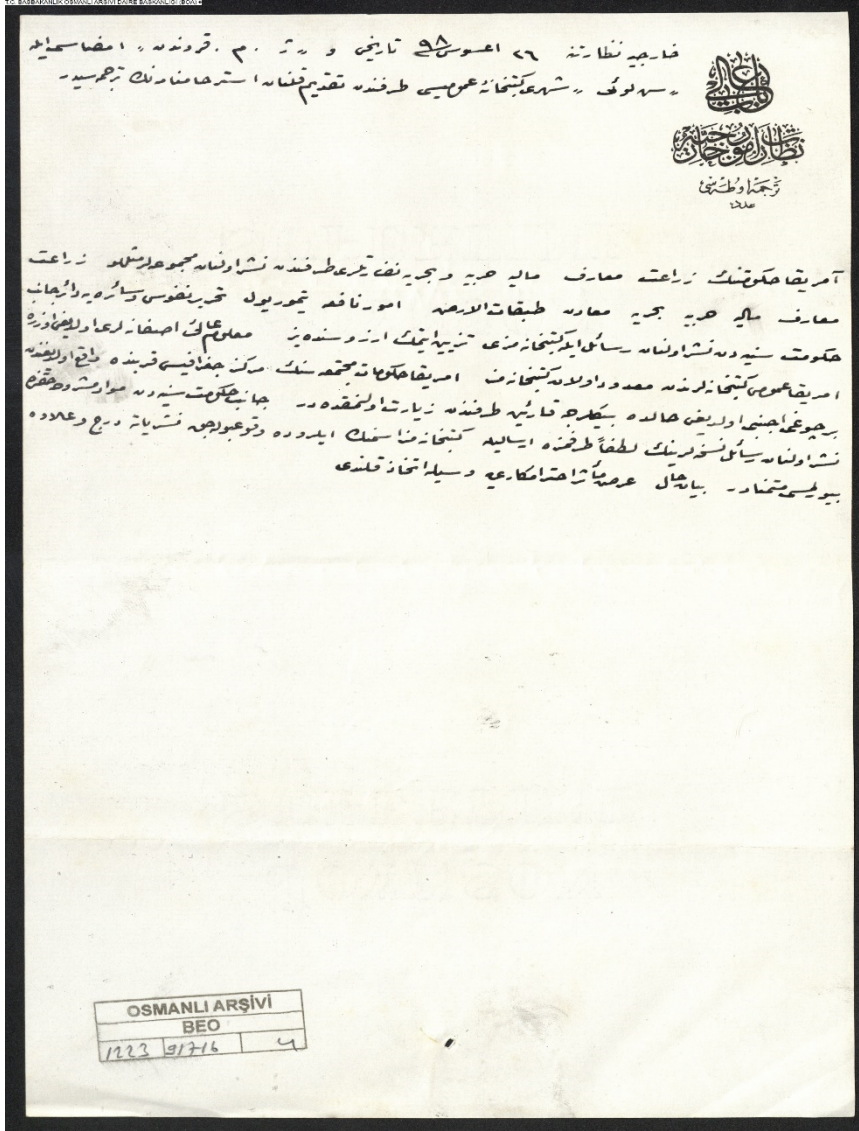 T.C. BAŞBAKANLIK OSMANLI ARŞİVİ DAİRE BAŞKANLIĞI (BOA)
باب عالی
نظارت امور خارجیه
ترجمه اوطه‌سی
عدد
خارجیه نظارتنه ٢٦ اغستوس ٩٨ تاریخی و " ژ . م . قروندن " امضاسیله
" سن لوئی " شهری کتبخانهٔ عمومیسی طرفندن تقدیم قلنان استرحامنامه‌نك ترجمه‌سیدر
آمریقا حکومتنك زراعت معارف مالیه حربیه و بحریه نظارتلری طرفندن نشر اولنان مجموعه‌لر مثللو زراعت
معارف مالیه حربیه بحریه معادن طبقات الارض امور نافعه تیموریول تحریر نفوس و سائره‌یه دائر جانب
حکومت سنیه‌دن نشر اولنان رسائل ایله کتبخانه‌مزی تزیین ایتمك ارزوسنده‌یز معلوم عالیلری اولدیغی اوزره
امریقا عمومی کتبخانه‌لرندن معدود اولان کتبخانه‌مز امریقا حکومات مجتمعه‌سنك مرکز جغرافیسی قربنده واقع اولدیغندن
برچوغی اجنبی اولدیغی حالده بیكلرجه قارئین طرفندن زیارت اولنمقده‌در جانب حکومت سنیه‌دن مواد مشروحه حقنده
نشر اولنان رسائل نسخه‌لرینك لطفاً طرفمزه ارسالیله کتبخانه‌مز اسمنك ایلروده وقوعبوله‌جق نشریاته درج و علاوه
بیورلمسی متمنادر بیان حال عرض مأثر احترامکاری‌یه وسیله اتخاذ قلندی
OSMANLI ARŞİVİ
BEO
1223 91716 4